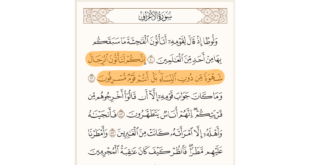 سورة الأعراف
وَلُوطًا إِذْ قَالَ لِقَوْمِهِۦٓ أَتَأْتُونَ ٱلْفَٰحِشَةَ مَا سَبَقَكُم
بِهَا مِنْ أَحَدٍ مِّنَ ٱلْعَٰلَمِينَ ٨٠ إِنَّكُمْ لَتَأْتُونَ ٱلرِّجَالَ
شَهْوَةً مِّن دُونِ ٱلنِّسَآءِ بَلْ أَنتُمْ قَوْمٌ مُّسْرِفُونَ ٨١
وَمَا كَانَ جَوَابَ قَوْمِهِۦٓ إِلَّآ أَن قَالُوٓا۟ أَخْرِجُوهُم مِّن
قَرْيَتِكُمْ إِنَّهُمْ أُنَاسٌ يَتَطَهَّرُونَ ٨٢ فَأَنجَيْنَٰهُ
وَأَهْلَهُۥٓ إِلَّا ٱمْرَأَتَهُۥ كَانَتْ مِنَ ٱلْغَٰبِرِينَ ٨٣ وَأَمْطَرْنَا
عَلَيْهِم مَّطَرًا فَٱنظُرْ كَيْفَ كَانَ عَٰقِبَةُ ٱلْمُجْرِمِينَ